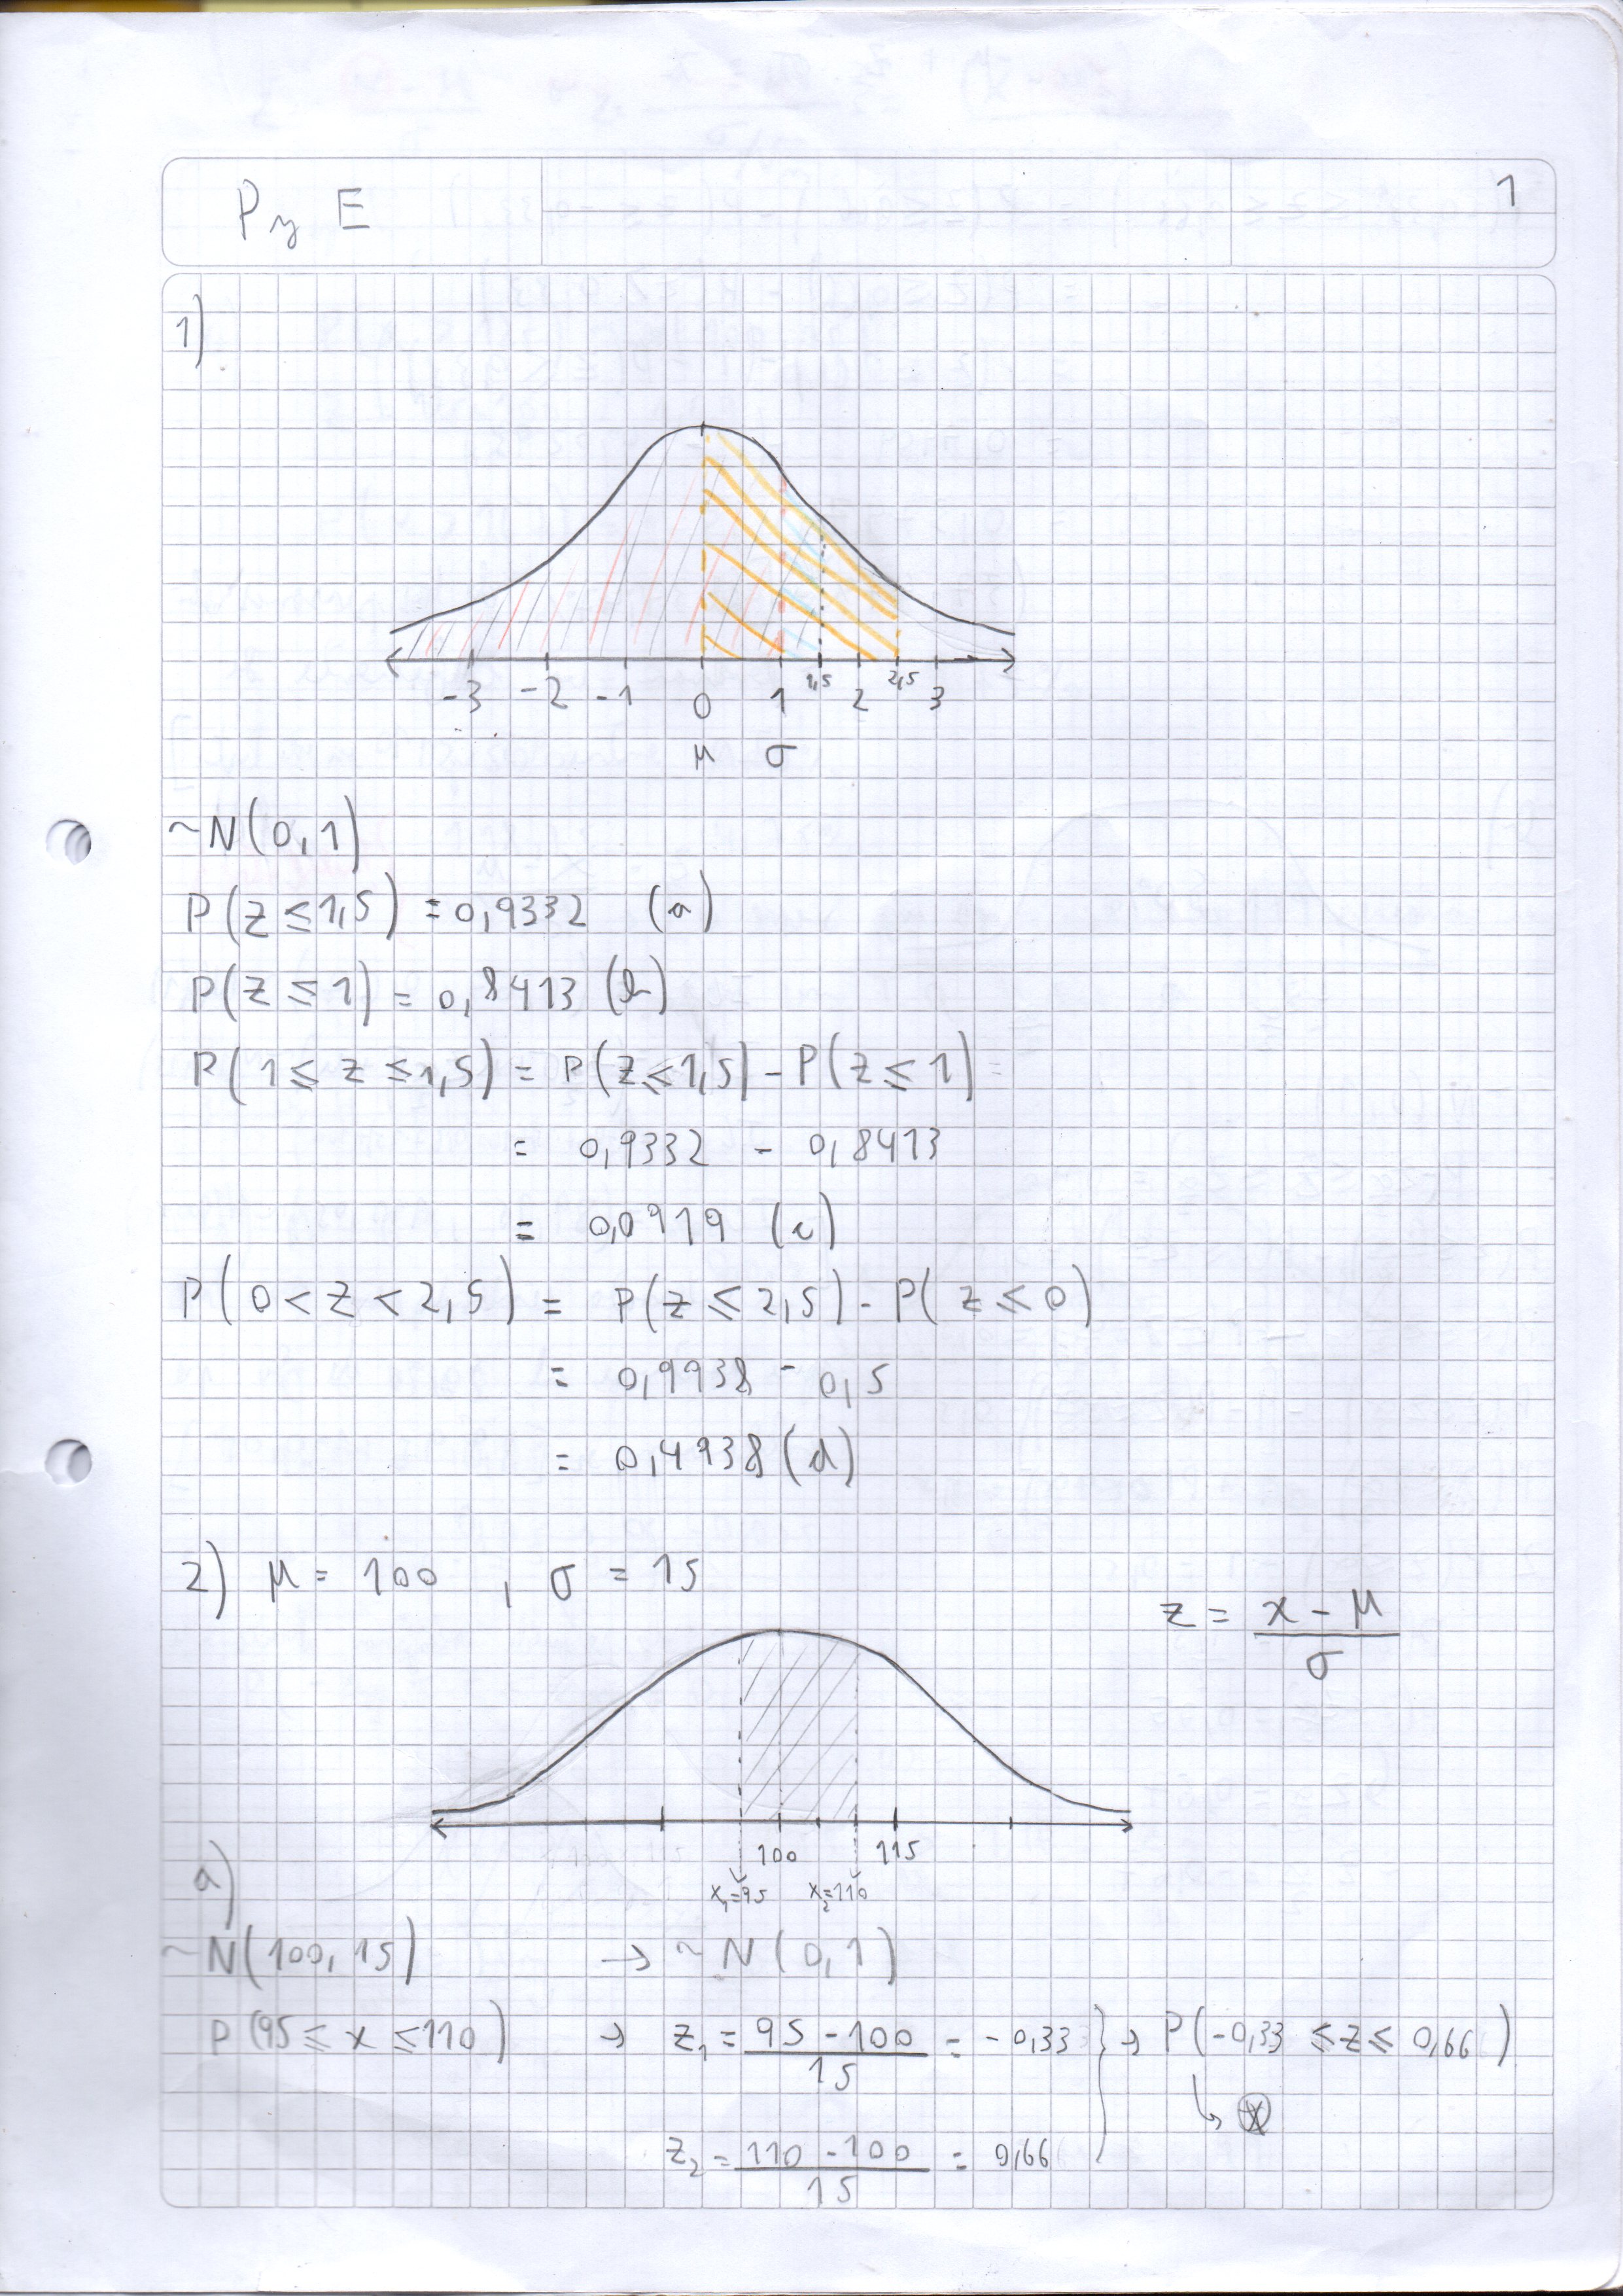 P y E
1
1)
-3 -2 -1 0 1 1,5 2 2,5 3
μ σ
~N(0,1)
P(z≤1,5) = 0,9332 (a)
P(z≤1) = 0,8413 (b)
P(1≤z≤1,5) = P(z≤1,5) - P(z≤1) =
= 0,9332 - 0,8413
= 0,0919 (c)
P(0<z<2,5) = P(z≤2,5) - P(z≤0)
= 0,9938 - 0,5
= 0,4938 (d)
2) μ = 100 , σ = 15
z = x - μ / σ
100 115
x₁=95 x₂=110
a)
~N(100,15) → ~N(0,1)
P(95≤x≤110) → z₁ = 95 - 100 / 15 = -0,33 } → P(-0,33 ≤z≤ 0,66)
↳ ⊛
z₂ = 110 - 100 / 15 = 0,66